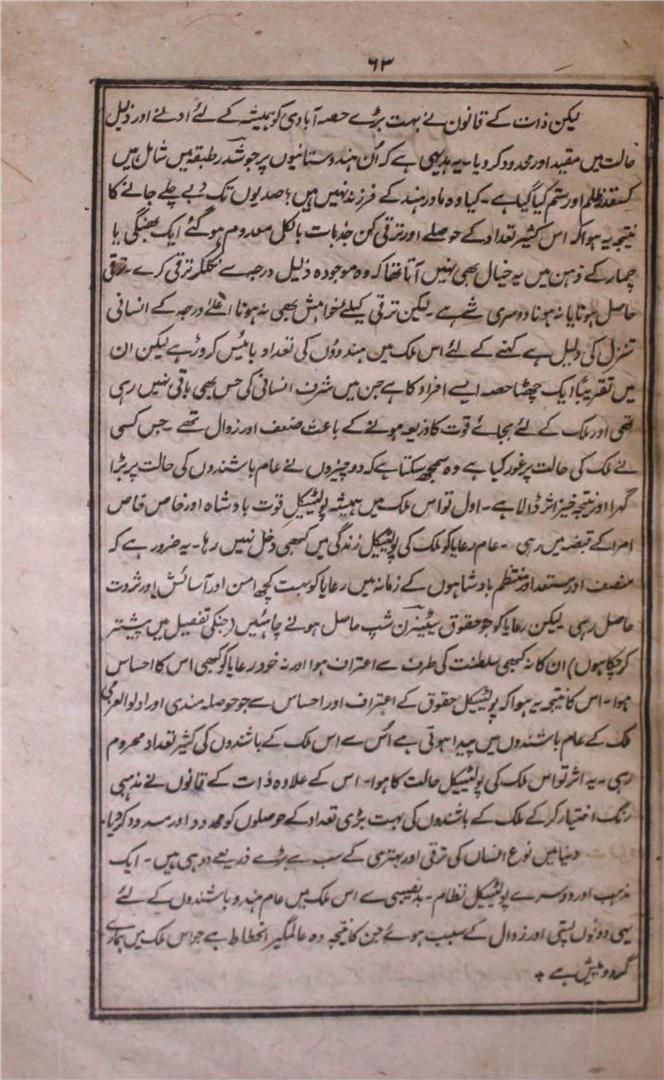 ۶۳
لیکن ذات کے قانون نے بہت بڑے حصہ آبادی کو ہمیشہ کے لئے ادنےٰ اور ذلیل
حالت میں مقید اور محدود کر دیا۔ یہ بدیہی ہے کہ اُن ہندوستانیوں پر جو شدر طبقہ میں شامل ہیں
کسقدر ظلم اور ستم کیا گیا ہے۔ کیا وہ مادر ہند کے فرزند نہیں ہیں؟ صدیوں تک دبے چلے جانے کا
نتیجہ یہ ہوا کہ اس کثیر تعداد کے حوصلے اور ترقی کن جذبات بالکل معدوم ہو گئے ایک بھنگی یا
چمار کے ذہن میں یہ خیال بھی نہیں آتا تھا کہ وہ موجودہ ذلیل درجہ سے نکلکر ترقی کرے۔ ترقی
حاصل ہونا یا نہ ہونا دوسری شے ہے۔ لیکن ترقی کیلئے خواہش بھی نہ ہونا اعلےٰ درجہ کے انسانی
تنزل کی دلیل ہے کہنے کے لئے اس ملک میں ہندوؤں کی تعداد بائیس کروڑ ہے لیکن ان
میں تقریباً ایک چھٹا حصہ ایسے افراد کا ہے جن میں شرف انسانی کی حس بھی باقی نہیں رہی
تھی اور ملک کے لئے بجائے قوت کا ذریعہ ہونے کے باعث ضعف اور زوال تھے۔ جس کسی
نے ملک کی حالت پر غور کیا ہے وہ سمجھ سکتا ہے کہ دو چیزوں نے عام باشندوں کی حالت پر بڑا
گہرا اور نتیجہ خیز اثر ڈالا ہے۔ اول تو اس ملک میں ہمیشہ پولٹیکل قوت بادشاہ اور خاص خاص
امرا کے قبضہ میں رہی۔ عام رعایا کو ملک کی پولٹیکل زندگی میں کبھی دخل نہیں رہا۔ یہ ضرور ہے کہ
منصف اور مستعد اور منتظم بادشاہوں کے زمانہ میں رعایا کو بہت کچھ امن اور آسائش اور ثروت
حاصل رہی۔ لیکن رعایا کو جو حقوق سیٹیزن شپ حاصل ہونے چاہئیں (جنکی تفصیل میں پیشتر
کر چکا ہوں) ان کا نہ کبھی سلطنت کی طرف سے اعتراف ہوا اور نہ خود رعایا کو کبھی اس کا احساس
ہوا۔ اس کا نتیجہ یہ ہوا کہ پولٹیکل حقوق کے اعتراف اور احساس سے جو حوصلہ مندی اور اولوالعزمی
ملک کے عام باشندوں میں پیدا ہوتی ہے اُس سے اس ملک کے باشندوں کی کثیر تعداد محروم
رہی۔ یہ اثر تو اس ملک کی پولٹیکل حالت کا ہوا۔ اس کے علاوہ ذات کے قانون نے مذہبی
رنگ اختیار کر کے ملک کے باشندوں کی بہت بڑی تعداد کے حوصلوں کو محدود اور مسدود کر دیا۔
دنیا میں نوع انساں کی ترقی اور بہتری کے سب سے بڑے ذریعے دو ہی ہیں۔ ایک
مذہب اور دوسرے پولٹیکل نظام۔ بدنصیبی سے اس ملک میں عام ہندو باشندوں کے لئے
یہی دونوں پستی اور زوال کے سبب ہوئے جن کا نتیجہ وہ عالمگیر انحطاط ہے جو اس ملک میں ہمارے
گرد و پیش ہے ۔